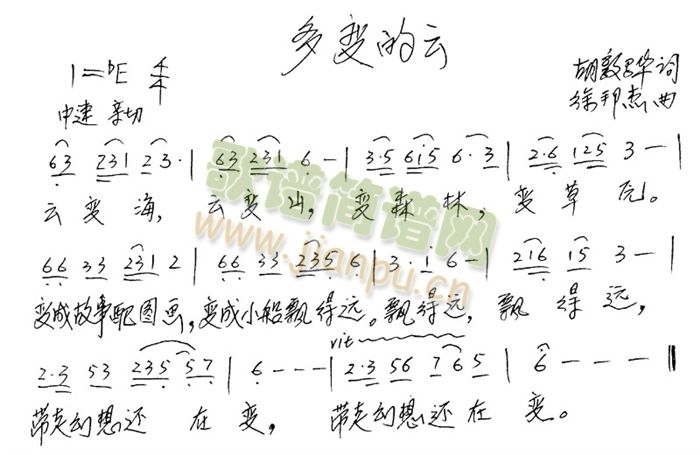 多变的云
1=♭E 4/4
胡敦骅词
中速 亲切
徐邦杰曲
63 231 23·| 63 231 6 -| 3·5 615 6·3| 2·6 125 3 -|
云变海, 云变山, 变森林, 变草原。
66 33 231 2| 66 33 2356| 3·i 6 -| 216 15 3 -|
变成故事配图画,变成小船飘得远。飘得远, 飘得远,
rit
2·3 53 235 57| 6 - - -| 2·3 56 765| 6 - - -‖
带走幻想还在变, 带走幻想还在变。
歌谱简谱网
www.jianpu.cn